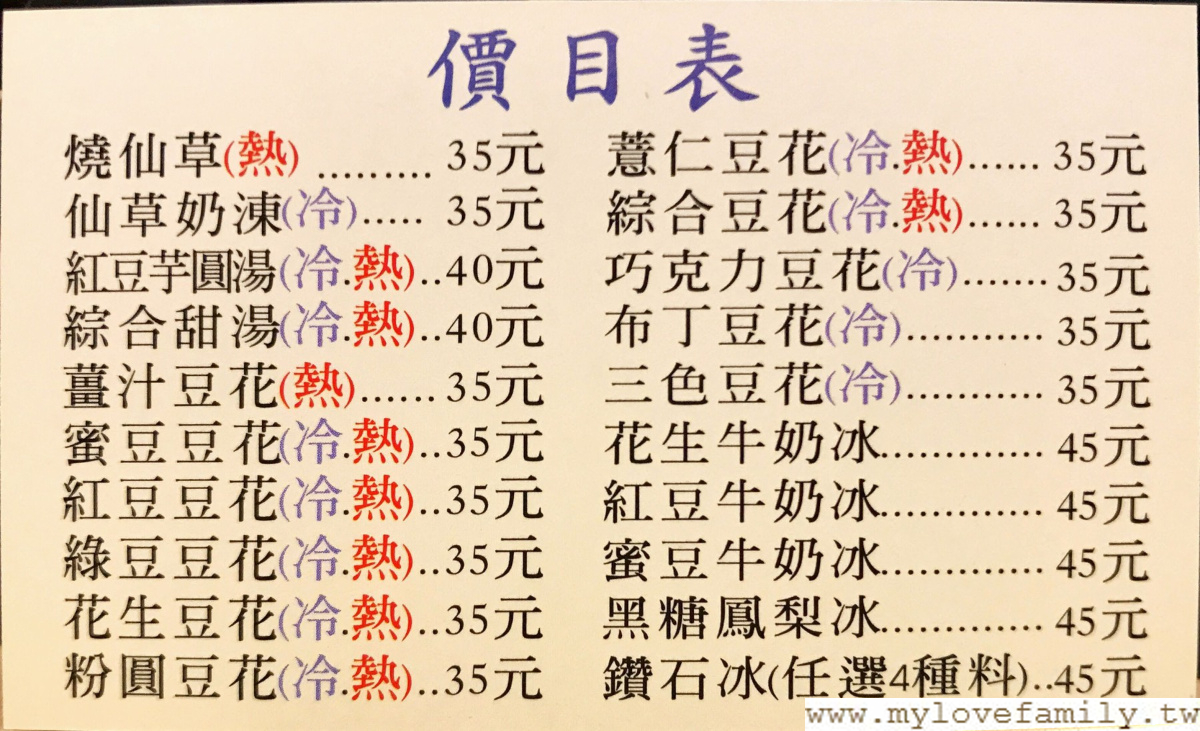 價目表
燒仙草(熱) ......... 35元
仙草奶凍(冷)..... 35元
紅豆芋圓湯(冷.熱)..40元
綜合甜湯(冷.熱)..40元
薑汁豆花(熱)...... 35元
蜜豆豆花(冷.熱)..35元
紅豆豆花(冷.熱)..35元
綠豆豆花(冷.熱)..35元
花生豆花(冷.熱)..35元
粉圓豆花(冷.熱)..35元
薏仁豆花(冷.熱)...... 35元
綜合豆花(冷.熱)...... 35元
巧克力豆花(冷).......35元
布丁豆花(冷)........... 35元
三色豆花(冷)........... 35元
花生牛奶冰............. 45元
紅豆牛奶冰............. 45元
蜜豆牛奶冰............. 45元
黑糖鳳梨冰............. 45元
鑽石冰(任選4種料)..45元
www.mylovefamily.tw